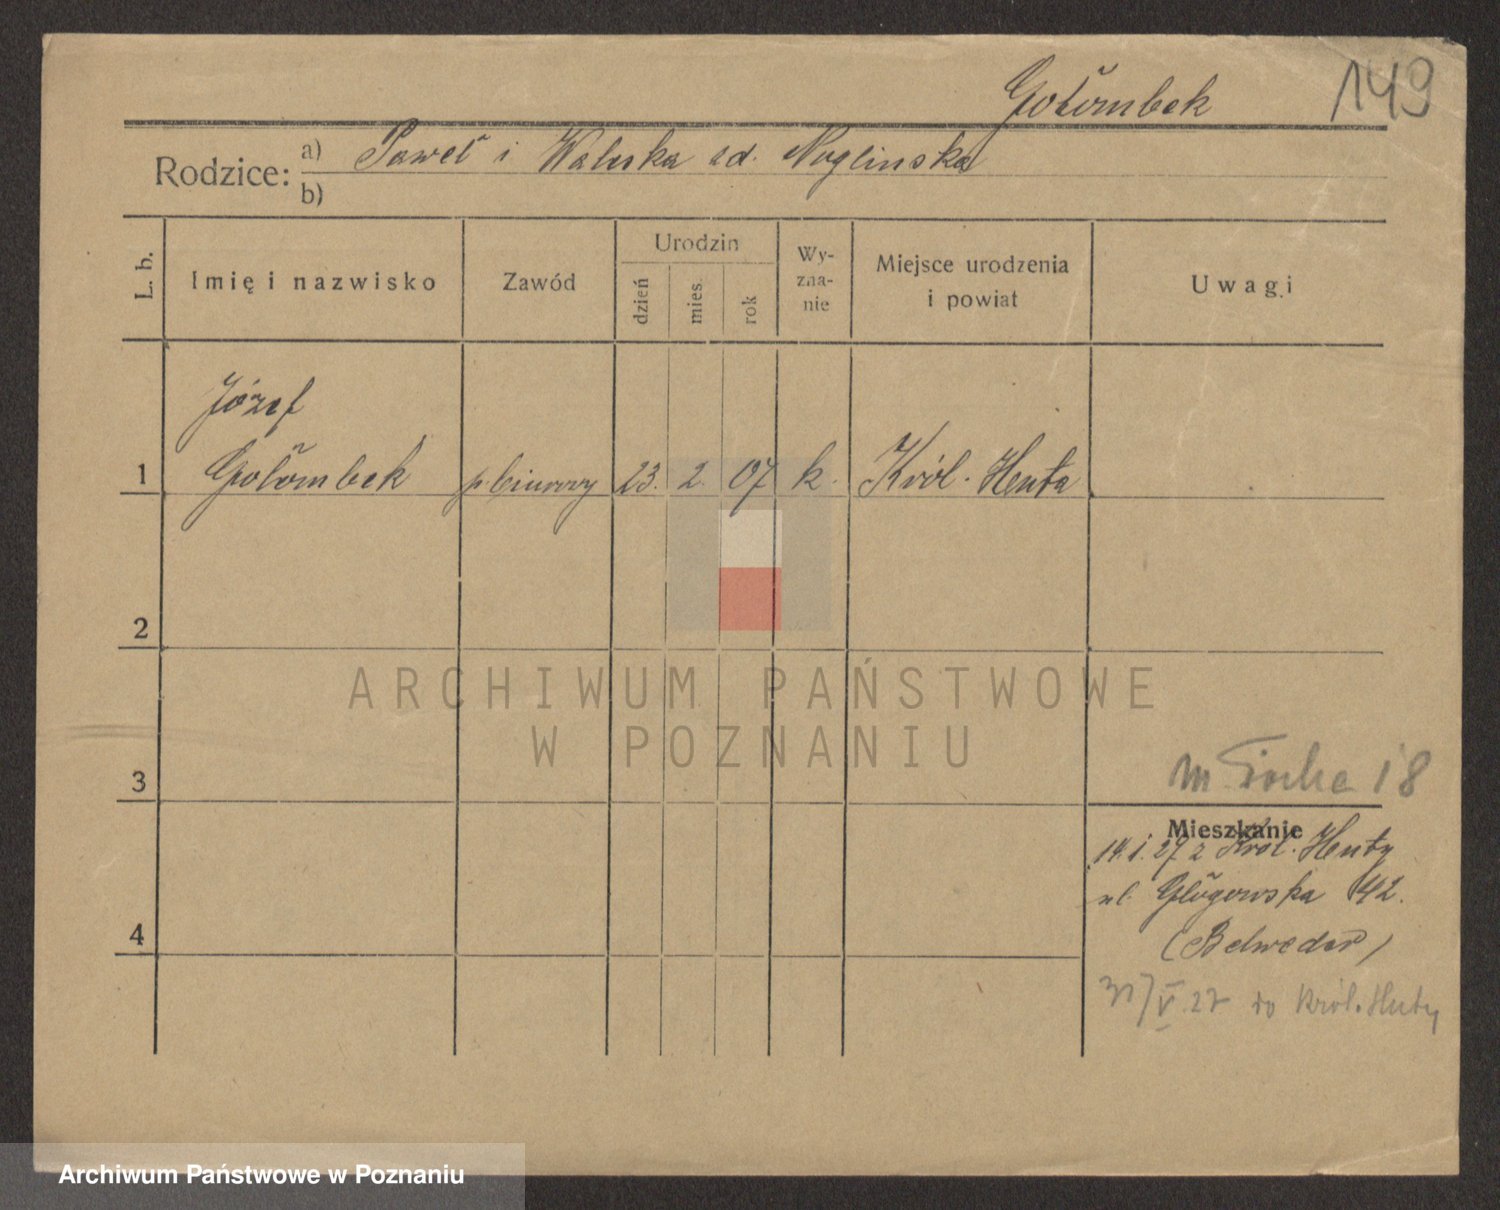 Gołombek 149
Rodzice: a) Paweł i Waleska zd. Noglinska
b)
L. b.
Imię i nazwisko
Zawód
Urodzin
dzień
mies.
rok
Wy-
zna-
nie
Miejsce urodzenia
i powiat
Uwagi
Józef
1 Gołombek p. biurowy 23. 2. 07 k. Król. Huta
2
3
4
18
Mieszkanie
14.1.27 z Król. Huty
ul. Głogowska 42.
(Belweder)
31/V.27 do Król. Huty
ARCHIWUM PAŃSTWOWE
W POZNANIU
Archiwum Państwowe w Poznaniu